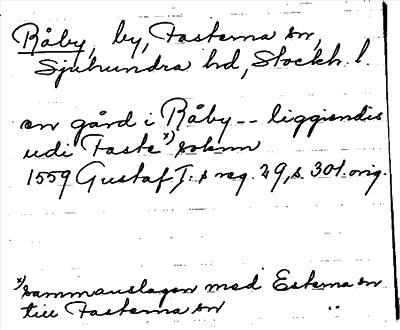 Råby, by, Fasterna sn,
Sjuhundra hd, Stockh. l.
en gård i Råby -- liggiendis
udi Faste x) soknn
1559 Gustaf I:s reg. 29, s. 301. orig.
x) sammanslagen med Esterna sn
till Fasterna sn